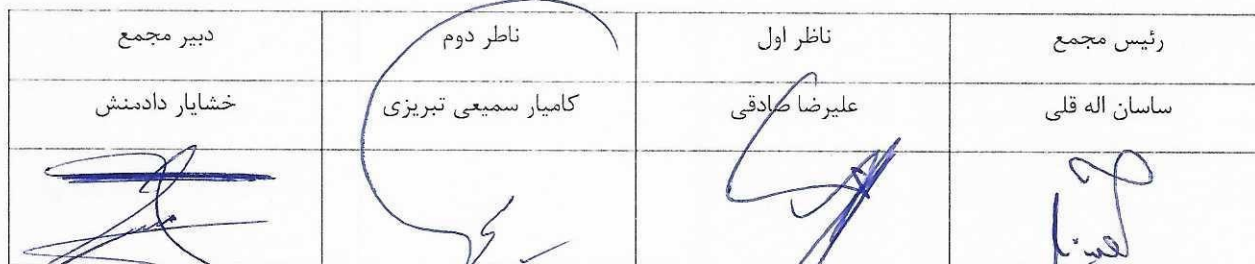 رئیس مجمع ناظر اول ناطر دوم دبیر مجمع
ساسان اله قلی علیرضا صادقی کامیار سمیعی تبریزی خشایار دادمنش